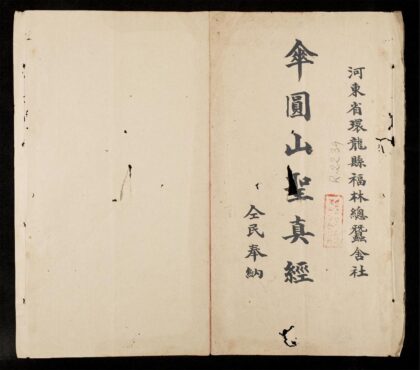 河東省環龍縣福林總蠶舍社
R.2234
傘圓山聖真經
仝民奉納